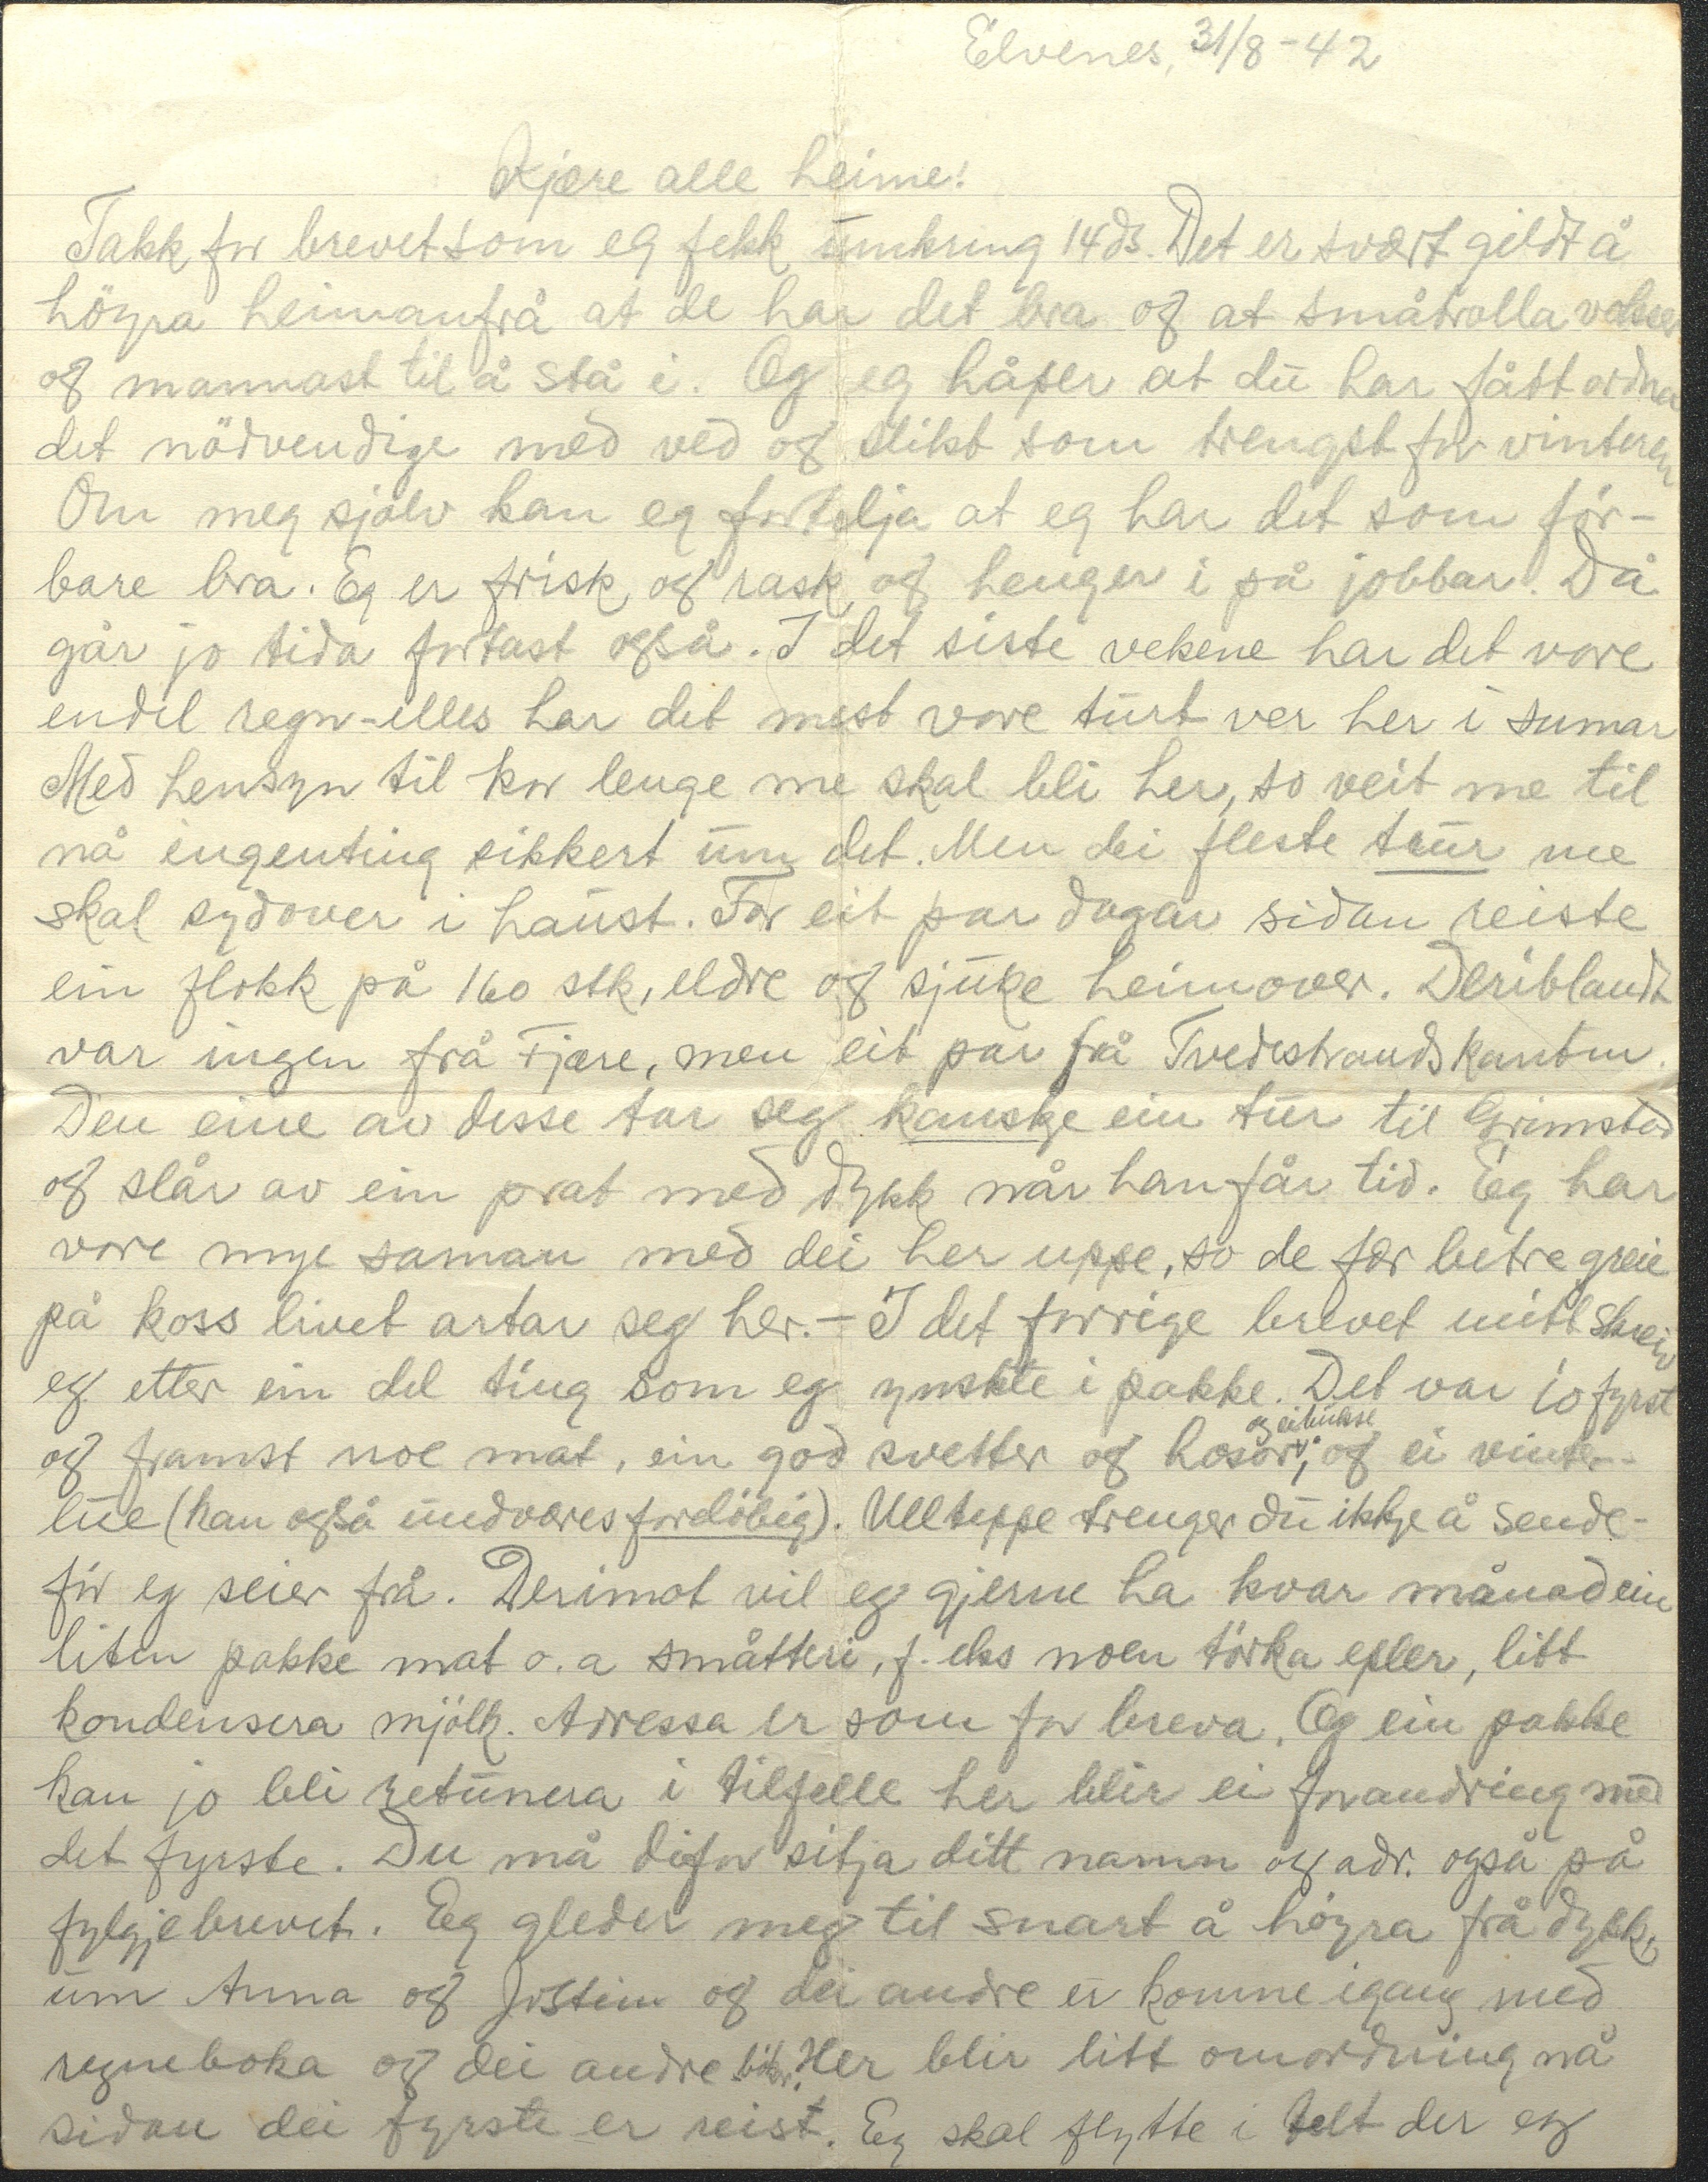 Elvenes, 31/8-42
Kjære alle heime!
Takk for brevet som eg fekk umkring 14ds. Det er svært gildt å
höyra heimanfrå at de har det bra og at småtrolla vekser
og mannast til å stå i. Og eg håper at du har fått ordna
det nödvendige med ved og slikt som trengst for vinteren
Om meg sjölv kan eg fortelja at eg har det som för-
bare bra. Eg er frisk og rask og henger i på jobbar. Då
går jo tida fortast også. I det siste vekene har det vore
endel regn - elles har det mest vore turt ver her i sumar
Med hensyn til kor lenge me skal bli her, so veit me til
nå ingenting sikkert um det. Men dei fleste trur me
skal sydover i haust. For eit par dagar sidan reiste
ein flokk på 160 stk, eldre og sjuke heimover. Deriblandt
var ingen frå Fjære, men eit par frå Tvedestrandskanten.
Den eine av desse tar seg kanskje ein tur til Grimstad
og slår av ein prat med dykk når han får tid. Eg har
vore mye saman med dei her uppe, so de får betre greie
på koss livet artar seg her. - I det forrige brevet mitt skreiv
eg etter ein del ting som eg ynskte i pakke. Det var jo fyrst
og framst noe mat, ein god svetter og hosor, og ei bukse og ei vinter-
lue (kan også undværes foreløbig). Ullteppe trenger du ikkje å sende -
för eg seier frå. Derimot vil eg gjerne ha kvar månad ein
liten pakke mat o.a småtteri, f. eks noen törka epler, litt
kondensera mjölk. Adressa er som for breva. Og ein pakke
kan jo bli retunera i tilfelle her blir ei forandring med
det fyrste. Du må difor sitja ditt namn og adr. også på
fylgjebrevet. Eg gleder meg til snart å höyra frå dykk,
um Anna og Jostein og dei andre er komne igang med
regneboka og dei andre böker. Her blir litt omordning nå
sidan dei fyrste er reist. Eg skal flytte i telt der eg